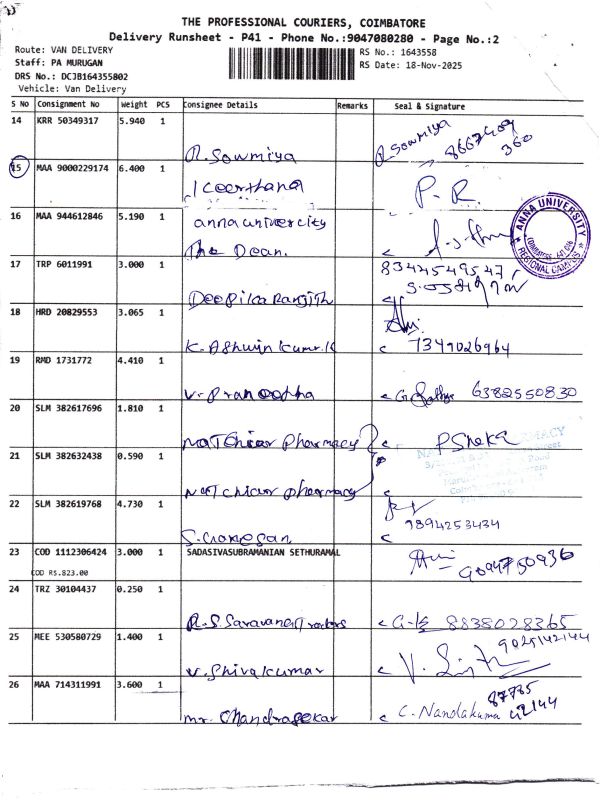 THE PROFESSIONAL COURIERS, COIMBATORE
Delivery Runsheet - P41 - Phone No.:9047080280 - Page No.:2
Route: VAN DELIVERY
RS No.: 1643558
Staff: PA MURUGAN
RS Date: 18-Nov-2025
DRS No.: DCJB164355802
Vehicle: Van Delivery
S No Consignment No Weight PCS Consignee Details Remarks Seal & Signature
14 KRR 50349317 5.940 1
R. Sowmiya R. Sowmiya 8667409
360
15 MAA 9000229174 6.400 1
Keerthana P. R.
16 MAA 944612846 5.190 1
anna univercity
The Dean.
ANNA UNIVERSITY
REGIONAL CAMPUS
17 TRP 6011991 3.000 1
Deepika Ranjith
18 HRD 20829553 3.065 1
K. Ashwin Kumr. K 7349026964
19 RMD 1731772 4.410 1
V. Pranootha 6382550830
20 SLM 382617696 1.810 1
NaTchiar Pharmacy
21 SLM 382632438 0.590 1
NaTchiar Pharmacy
22 SLM 382619768 4.730 1
S. Ganesan 9894253434
23 COD 1112306424 3.000 1 SADASIVASUBRAMANIAN SETHURAMAL
COD RS.823.00
9094750936
24 TRZ 30104437 0.250 1
R. S. Saravana Tractors 8838028365
25 MEE 530580729 1.400 1
V. Shivakumar 9025142144
26 MAA 714311991 3.600 1
mr. Chandrasekar C. Nandakuma 87785
42144